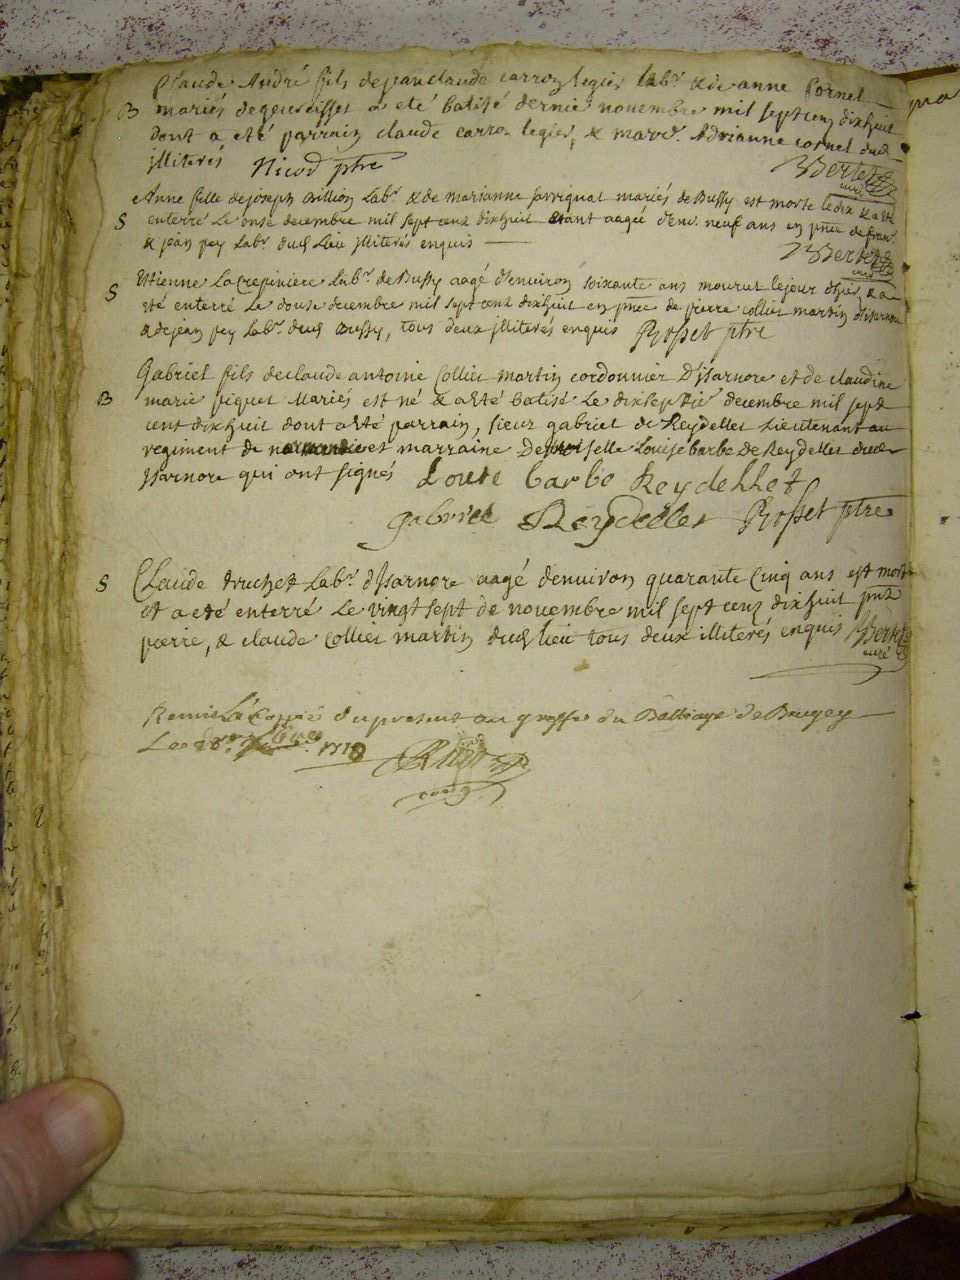 Claude André fils de jean claude carroz legier lab.r & de anne Cornel
B mariés de geurdisset a eté batisé dernie novembre mil sept cenz dixhuit
dont a eté parrain claude carroz legier, & marr.e Adrianne cornel dud.
jlliterés Nicod ptre Bertet
curé
Anne fille de joseph Billion Lab.r & de marianne mariés de Bussy est morte le dix & a eté
S enterré Le onse decembre mil sept cenz dixhuit etant aagée d'env. neuf ans en pnce de
& jean pey Lab.r dud Lieu jlliterés enquis Bertet
curé
Etienne Lacrepiniere Lab.r de Bussy aagé d'environ soixante ans mourut le jour d'hier & a
S eté enterré Le douse decembre mil sept cenz dixhuit en pnce de pierre collier martin d'isarnore
& de jean pey Lab.r dud Bussy, tous deux jlliterés enquis Rosset ptre
Gabriel fils de claude antoine collier martin cordonnier D'jsarnore et de claudine
B marie piquet Mariés est né & a eté batisé Le dix sept decembre mil sept
cent dixhuit dont a eté parrain, sieur gabriel de Reydellet Lieutenant au
regiment de normandie et marraine Demoiselle Louise barbe De Reydellet dud
jsarnore qui ont signés Louise barbe Reydellet
gabriel Reydellet Rosset ptre
S Claude truchet Lab.r d'Jsarnore aagé d'environ quarante cinq ans est mort
et a eté enterré Le vingt sept de novembre mil sept cenz dixhuit pnt
pierre, & claude collier martin dud lieu tous deux jlliterés enquis Bertet
curé
Remis La Coppie du present au greffe du Balliage de Bugey
Le 1718